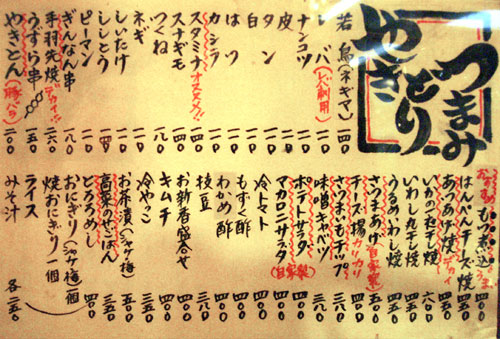 つまみ
やきとり
若鳥(ネギマ) 一四〇
レバ(人間用) 一一〇
ナンコツ 一一〇
皮 一一〇
タン 一一〇
白 一一〇
はつ 一一〇
カシラ 一一〇
スタミナ オススメ!! 一四〇
スナギモ 一四〇
つくね 一八〇
ネギ 一一〇
しいたけ 一一〇
ししとう 一一〇
ピーマン 一一〇
ぎんなん串 一八〇
手羽先焼 デカイ!! 二六〇
うずら串 一五〇
やきとん(豚バラ) 二〇〇
もつ煮込 四〇〇
はんぺんチーズ焼 四五〇
あつあげ焼 デカイ 四五〇
いかの一夜干し焼 六〇〇
いわし丸干し焼 四五〇
うるめいわし焼 四〇〇
さつまあげ(自家製) 五〇〇
チーズ揚 カリカリ 四〇〇
さつまいもチップ 四〇〇
味噌キャベツ 三八〇
ポテトサラダ 三八〇
マカロニサラダ(自家製) 四〇〇
冷トマト 四〇〇
もずく酢 四〇〇
わかめ酢 四〇〇
枝豆 三八〇
お新香盛合せ 四〇〇
キムチ 四〇〇
冷やっこ 三五〇
お茶漬(シャケ・梅) 五五〇
高菜のせごはん 三五〇
とろろめし 四〇〇
おにぎり(シャケ・梅)一個
焼おにぎり一個
ライス
みそ汁 各二五〇